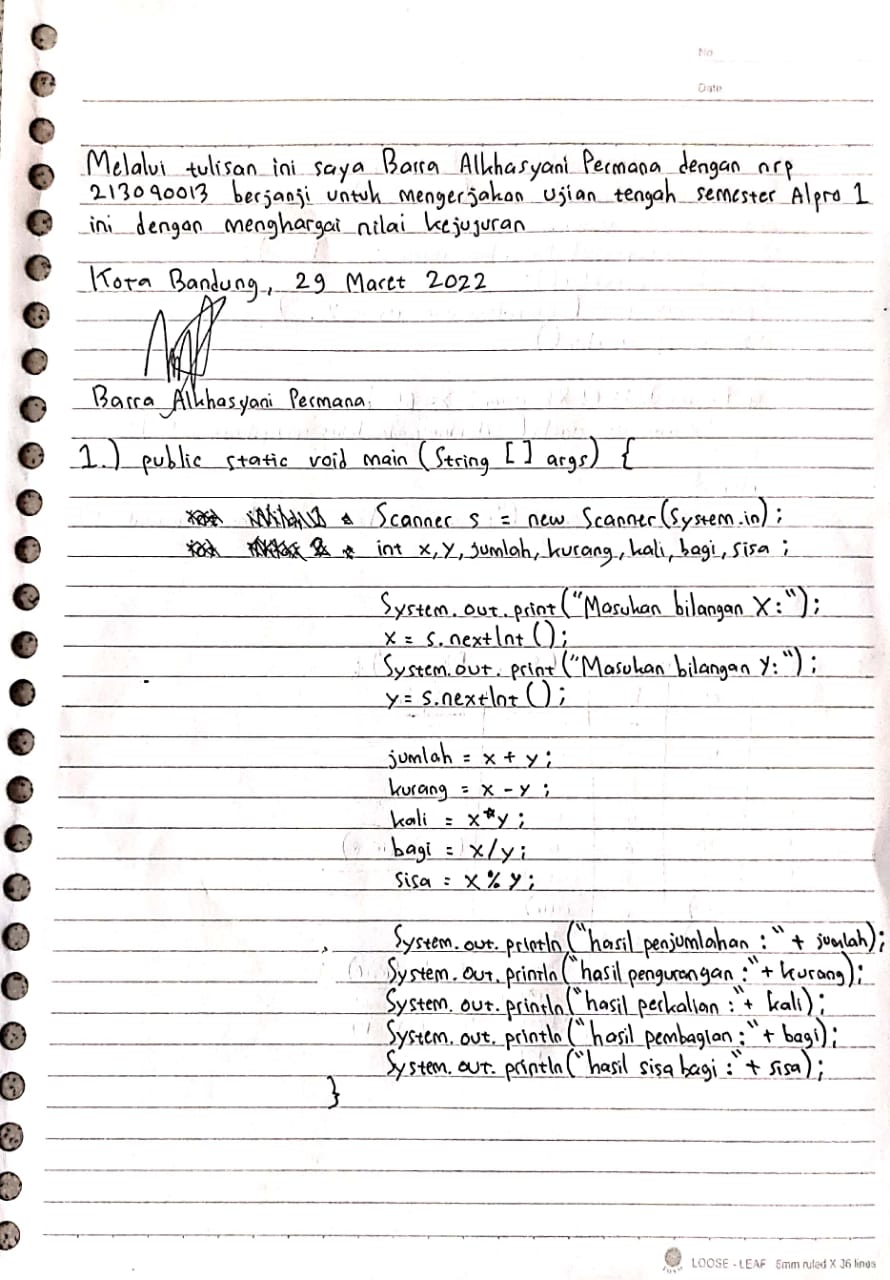 No
Date
Melalui tulisan ini saya Barra Alkhasyani Permana dengan nrp
213090013 berjanji untuk mengerjakan ujian tengah semester Alpro 1
ini dengan menghargai nilai kejujuran
Kota Bandung, 29 Maret 2022
Barra Alkhasyani Permana
1.) public static void main (String [] args) {
Scanner s = new Scanner(System.in);
int x, y, jumlah, kurang, kali, bagi, sisa ;
System.out.print("Masukan bilangan X:");
x = s.nextInt ();
System.out.print("Masukan bilangan Y:");
y = s.nextInt ();
jumlah = x + y;
kurang = x - y ;
kali = x*y ;
bagi = x/y;
sisa = x % y;
System.out.println("hasil penjumlahan :" + jumlah);
System.out.println("hasil pengurangan :"+ kurang);
System.out.println("hasil perkalian :"+ kali);
System.out.println("hasil pembagian :"+ bagi);
System.out.println("hasil sisa bagi :"+ sisa);
}
LOOSE - LEAF 6mm ruled X 36 lines